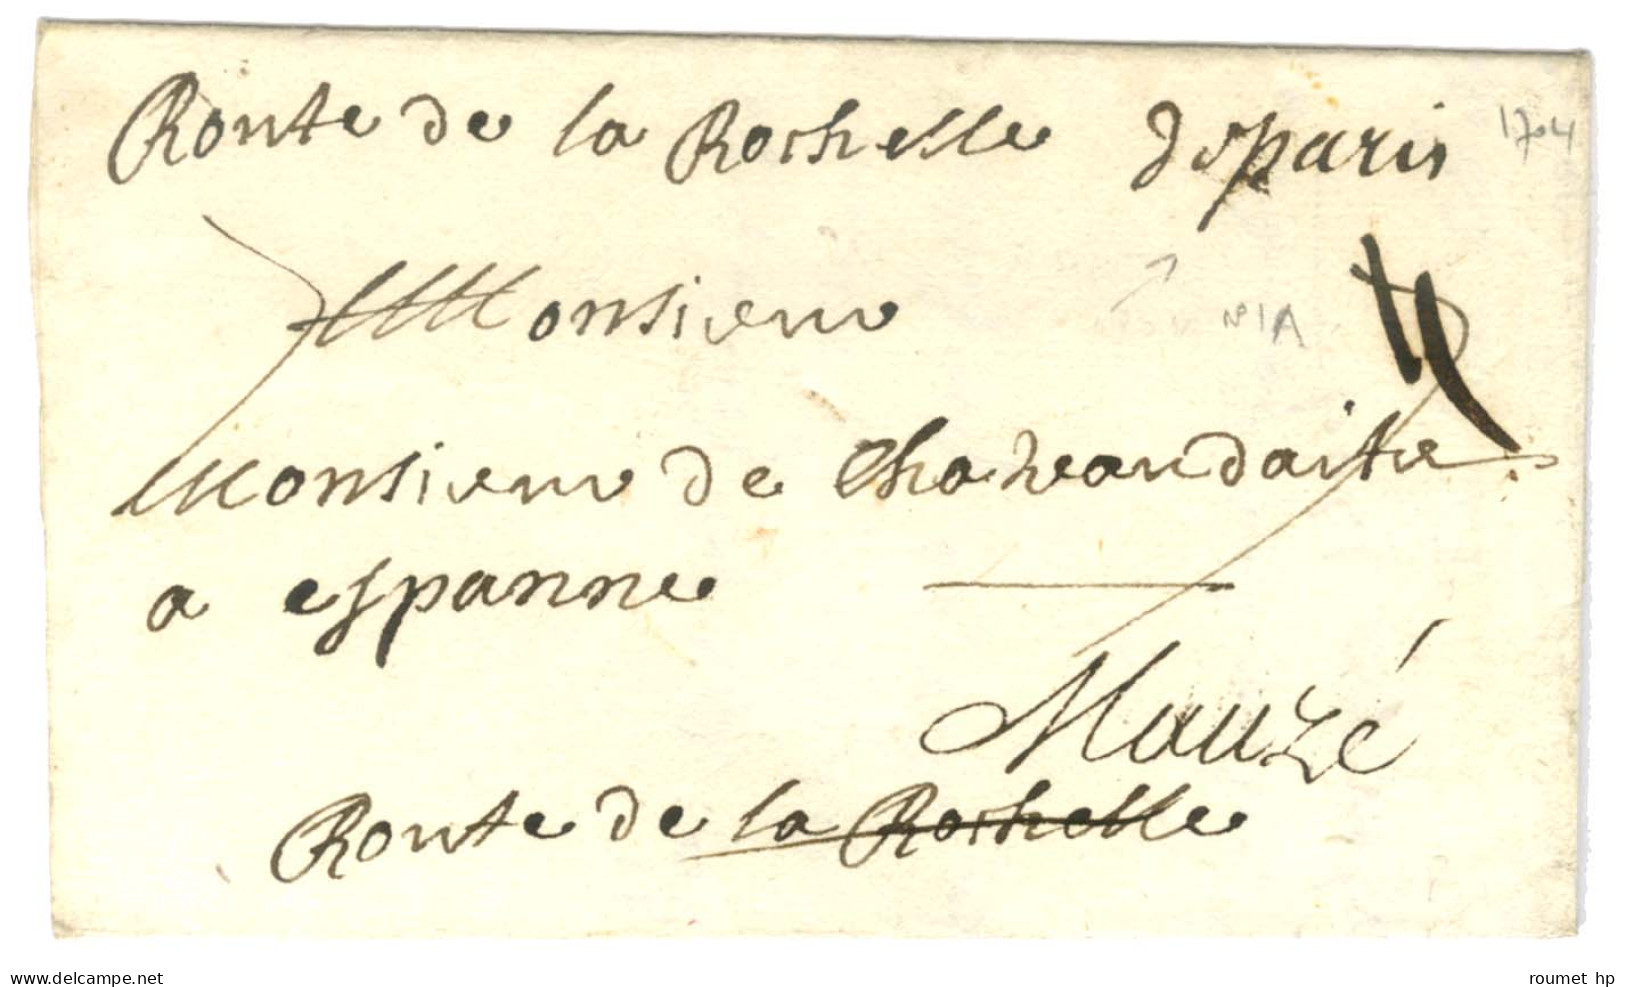 Route de la Rochelle De paris 1704
Monsieur
N°1A
Monsieur de
a espanne
Mauzé
Route de la Rochelle
delcampe.net
roumet hp